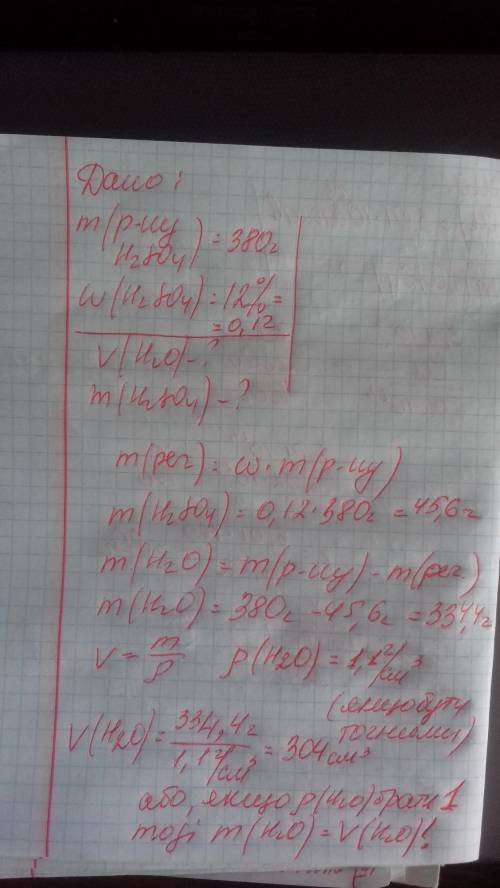 Дано:
m(р-ну
H2SO4) = 380г
w(H2SO4) = 12% =
= 0,12
V(H2O) - ?
m(H2SO4) - ?
m(реч) = w · m(р-ну)
m(H2SO4) = 0,12 · 380г = 45,6г
m(H2O) = m(р-ну) - m(реч)
m(H2O) = 380г - 45,6г = 334,4г
V = m/ρ ρ(H2O) = 1,1г/см³
(якщо бути
точніами)
V(H2O) = 334,4г / 1,1г/см³ = 304см³
або, якщо ρ(H2O) брати 1
тоді m(H2O) = V(H2O)!